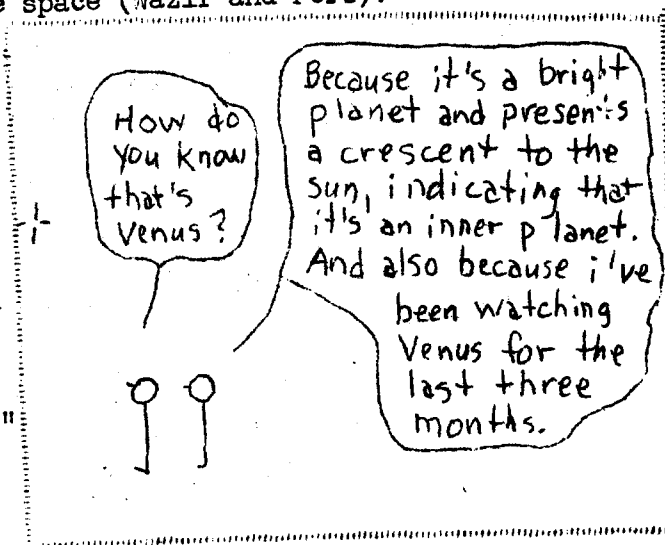 e space (Nazir and
How do
you know
that's
Venus?
Because it's a bright
planet and presents
a crescent to the
sun, indicating that
it's an inner planet.
And also because i've
been watching
Venus for the
last three
months.
"